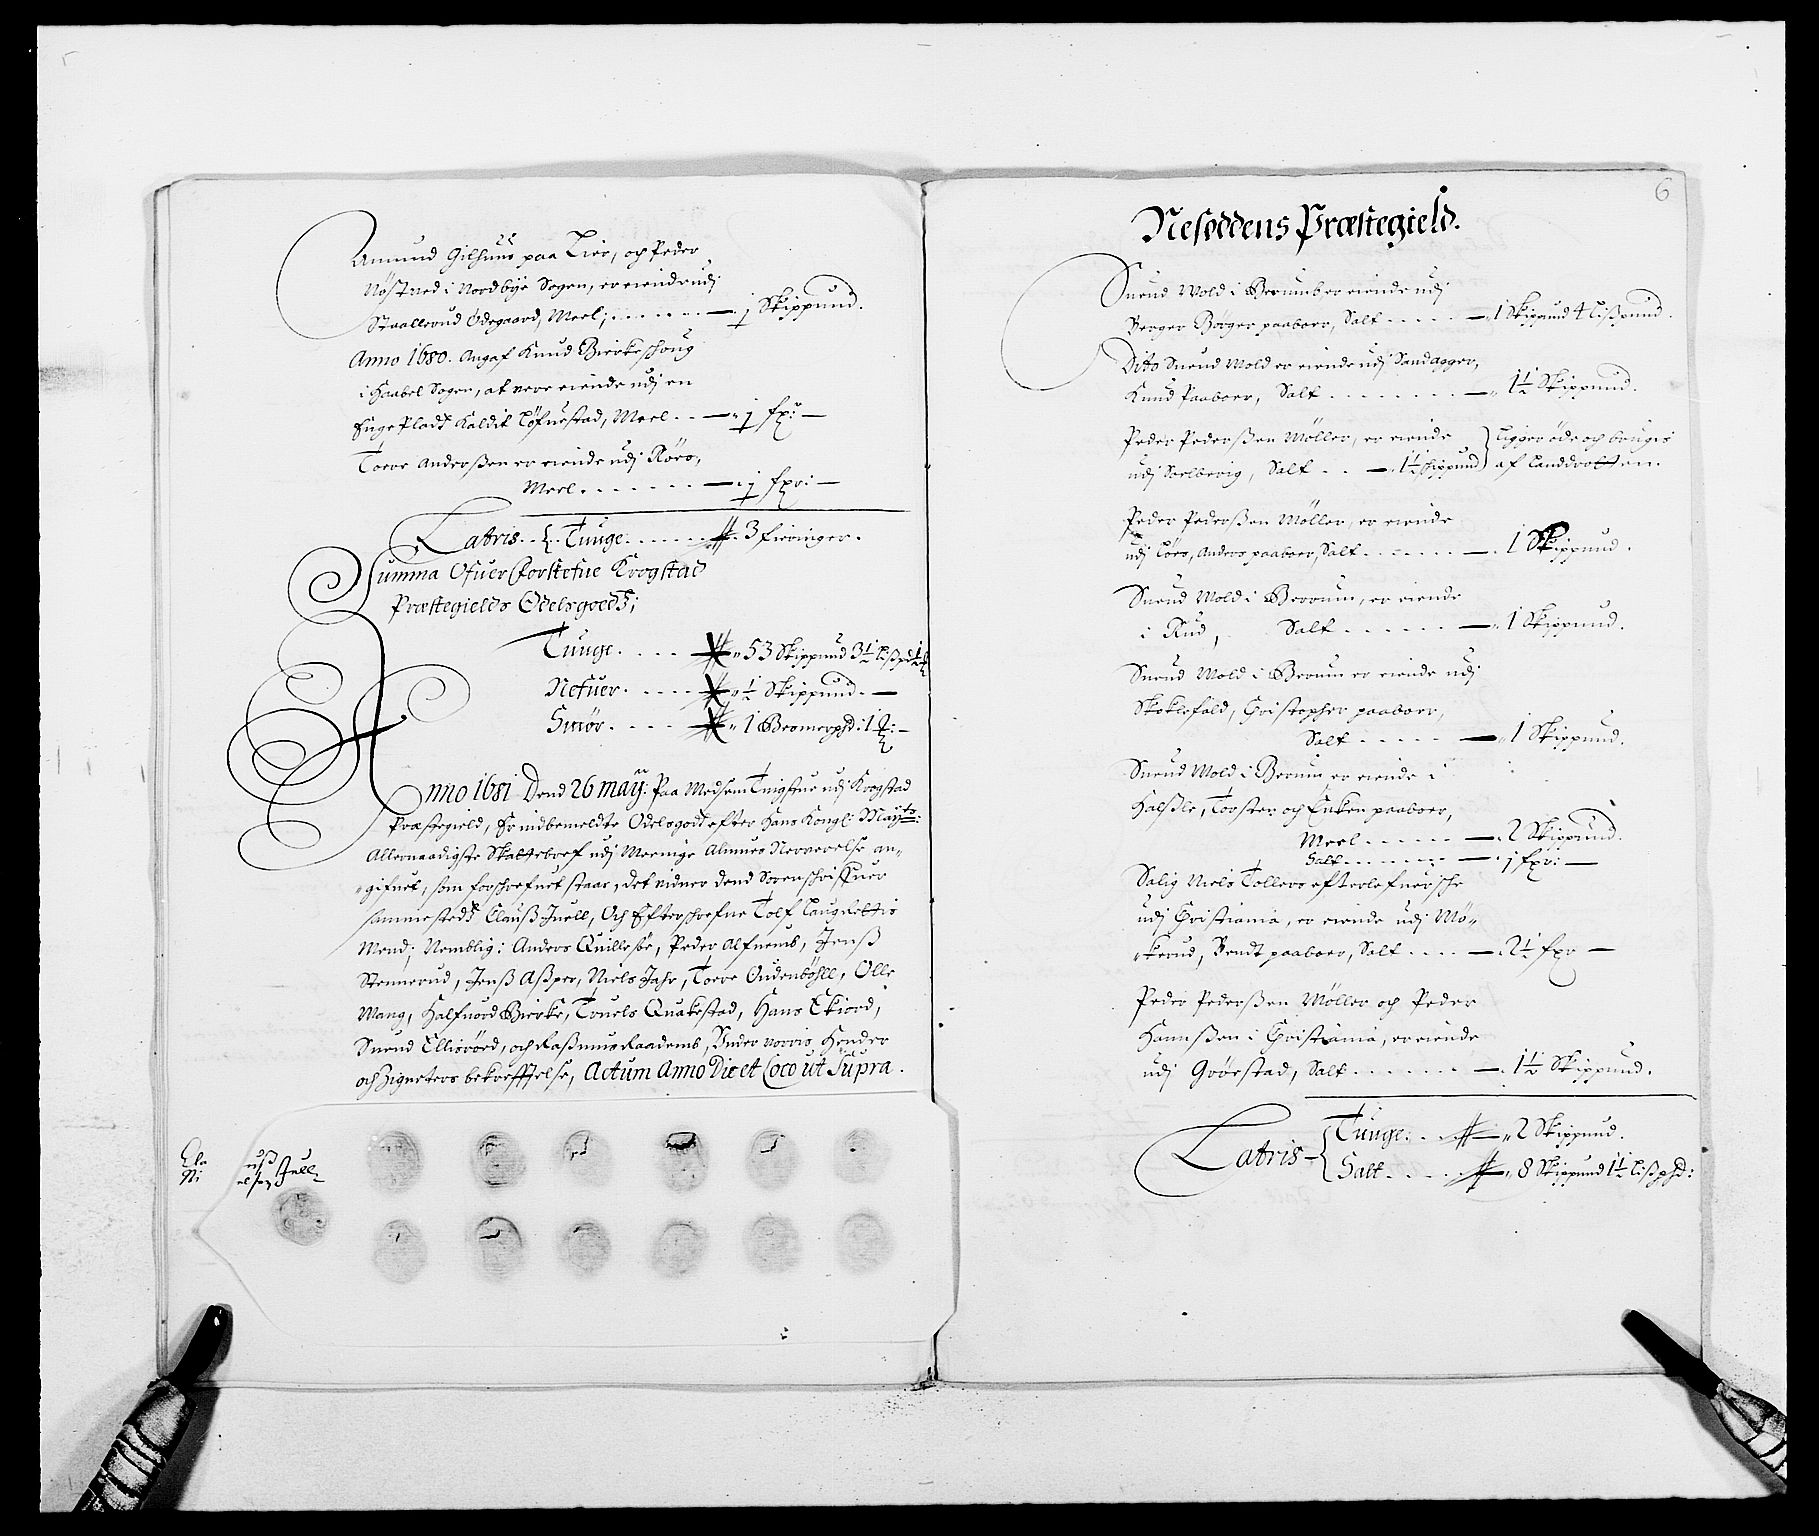 Amund Gilhuus paa Lier, och Peder
Nøstved i Nordbye Sogen, er eiende udj
Staallerud Ødegaard, Meel, - - - - j Skippund.
Anno 1680. Angaf Knud Bierkeschoug
i Haabel Sogen, at vere eiende udj en
Enge Pladtz Kaldit Løfuestad, Meel - - j fxr: —
Torre Anderßen er eiende udj Røer,
Meel - - - - j fxr: —
Latris - - Tunge - - - - 3 fieringer.
Summa Ofuer forskrefne Krogstad
Præstegields Odelsgoedtz;
Tunge - - - - 53 Skippund 3½ Lißpd
Nefuer - - - - ½ Skippund. —
Smør - - - - 1 Bremerphd: 1
Anno 1681 Dend 26 Maÿ: Paa Medsem Tingstue udj Krogstad
Præstegield, Er indbemeldte Odelsgodtz efter Hans Kongl: Maÿtz:
Allernaadigste Skattebref udj Meenige Almues Nerverelse an-
gifuet, som forschrefuet staar, det vidner Dend Sorenschrifuer
sammestedtz Clauß Juell, Och Efterschrefne Tolf Laugrettis
Mend; Nemblig: Anders Quillesøe, Peder Alfuemb, Jenß
Stennerud, Jenß Aßper, Niels Jahr, Torre Oudenbøhll, Olle
Wang, Halfuord Bierke, Truels Quakestad, Hans Ekiord,
Suend Ellisrød, och Raßmus Raadem, Under vorris Hender
och Zigneters bekrefftelse, Actum Anno Die et Loco ut Supra.
Clauß Juell
Nielsøn
6
Nesoddens Præstegield.
Suend Wold i Berumb er eiende udj
Berger Børger paaboer, Salt - - - - 1 Skippund 4 Lißpund.
Dito Suend Wold er eiende udj Sandagger,
Knud Paaboer, Salt - - - - 1½ Skippund.
Peder Pederßen Møller, er eiende
udj Soelbergig, Salt - - 1½ Skippund
Ligger øde och bruges
af Landdrotten.
Peder Pederßen Møller, er eiende
udj Toer, Anders paaboer, Salt - - - - 1 Skippund.
Suend Wold i Berrum, er eiende
i Rud, Salt - - - - 1 Skippund.
Suend Wold i Berum er eiende udj
Skoklefald, Christopher paaboer,
Salt - - - - 1 Skippund.
Suend Wold i Berum er eiende i
Halßle, Torsten och Enken paaboer,
Meel - - - - 2 Skippund.
Salt - - - - j fxr: —
Salig Niels Tollers efterlefuersche
udj Christiania, er eiende udj Mø-
kerud, Bendt paaboer, Salt - - - - 2½ fxr —
Peder Pederßen Møller och Peder
Hannßen i Christiania, er eiende
udj Grøestad, Salt - - - - 1½ Skippund.
Latris - Tunge: - - 2 Skippund.
Salt - - - - 8 Skippund 1½ Lißphd: